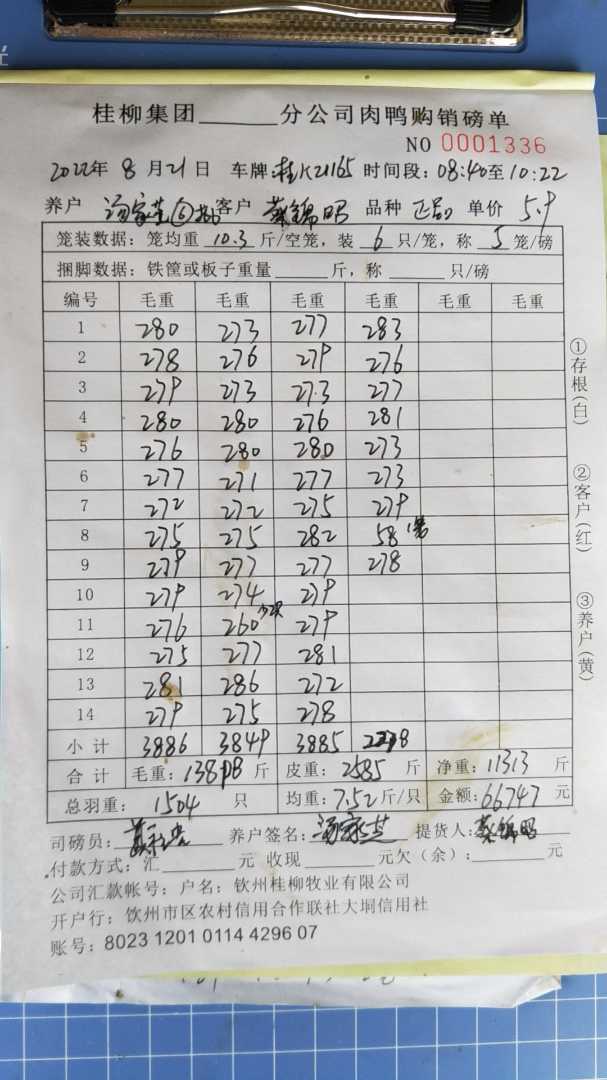 桂柳集团______分公司肉鸭购销磅单
NO 0001336
2022年 8 月 21 日 车牌:桂K21165 时间段: 08:40至10:22
养户 客户 蔡锦昭 品种 正品 单价 5.9
笼装数据: 笼均重 10.3 斤/空笼, 装 6 只/笼, 称 5 笼/磅
捆脚数据: 铁筐或板子重量______斤, 称______只/磅
编号 毛重 毛重 毛重 毛重 毛重 毛重
1 280 273 277 283
2 278 276 279 276
3 279 273 273 277
4 280 280 276 281
5 276 280 280 273
6 277 271 277 273
7 272 272 275 279
8 275 275 282 58 1笼
9 279 277 277 278
10 279 274 279
11 276 260 少2只 279
12 275 277 281
13 281 286 272
14 279 275 278
小计 3886 3849 3885 2278
合计 毛重: 13898 斤 皮重: 2585 斤 净重: 11313 斤
总羽重: 1504 只 均重: 7.52 斤/只 金额: 66747 元
司磅员: 养户签名: 提货人: 蔡锦昭
付款方式: 汇______元 收现______元欠(余):______元
公司汇款帐号: 户名: 钦州桂柳牧业有限公司
开户行: 钦州市区农村信用合作联社大垌信用社
账号: 8023 1201 0114 4296 07
①存根(白)
②客户(红)
③养户(黄)